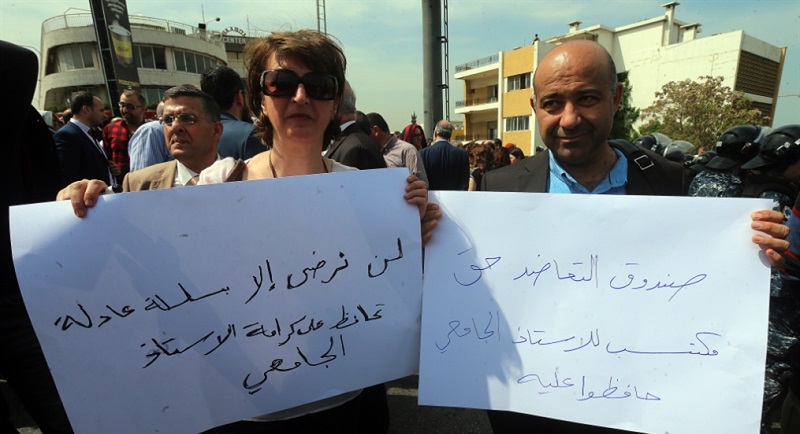 لن نرضى إلا بسلسلة عادلة
تحافظ على كرامة الاستاذ
الجامعي
صندوق التعاضد حق
مكتسب للاستاذ الجامعي
حافظوا عليه
CENTER